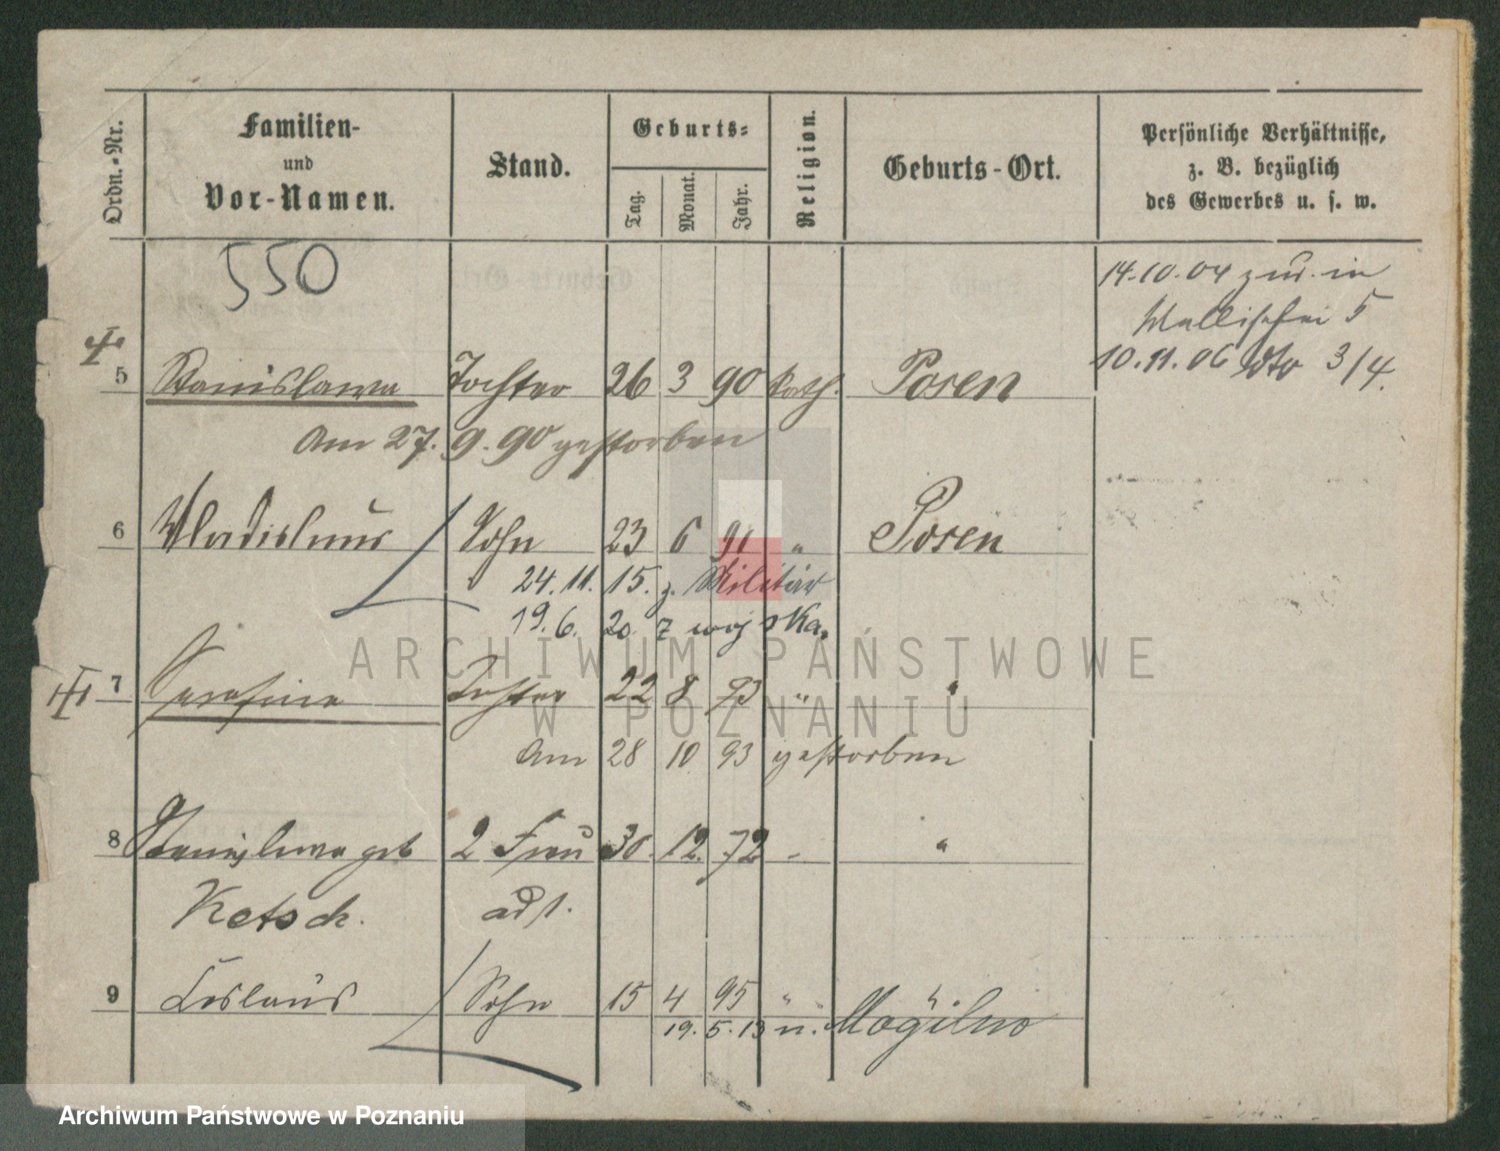 Ordn.-Nr.
Familien-
und
Vor-Namen.
Stand.
Geburts-
Tag.
Monat.
Jahr.
Religion.
Geburts-Ort.
Persönliche Verhältnisse,
z. B. bezüglich
des Gewerbes u. s. w.
550
14.10.04 zur. in
Wallischei 5
10.11.06 dto 3/4.
5 Stanislawa Tochter 26 3 90 kath. Posen
Am 27. 9. 90 gestorben
6 Wladislaus Sohn 23 6 91 " Posen
24. 11. 15. z. Militär
19. 6. 20 z wojska.
7 Serafine Tochter 22 8 93 " "
Am 28 10 93 gestorben
8 Stanislawa geb 2 Frau 30. 12. 72 - "
Ketsch.
9 Ceslaus Sohn 15 4 95 " "
19. 5. 13 n. Mogilno
ARCHIWUM PAŃSTWOWE
W POZNANIU
Archiwum Państwowe w Poznaniu